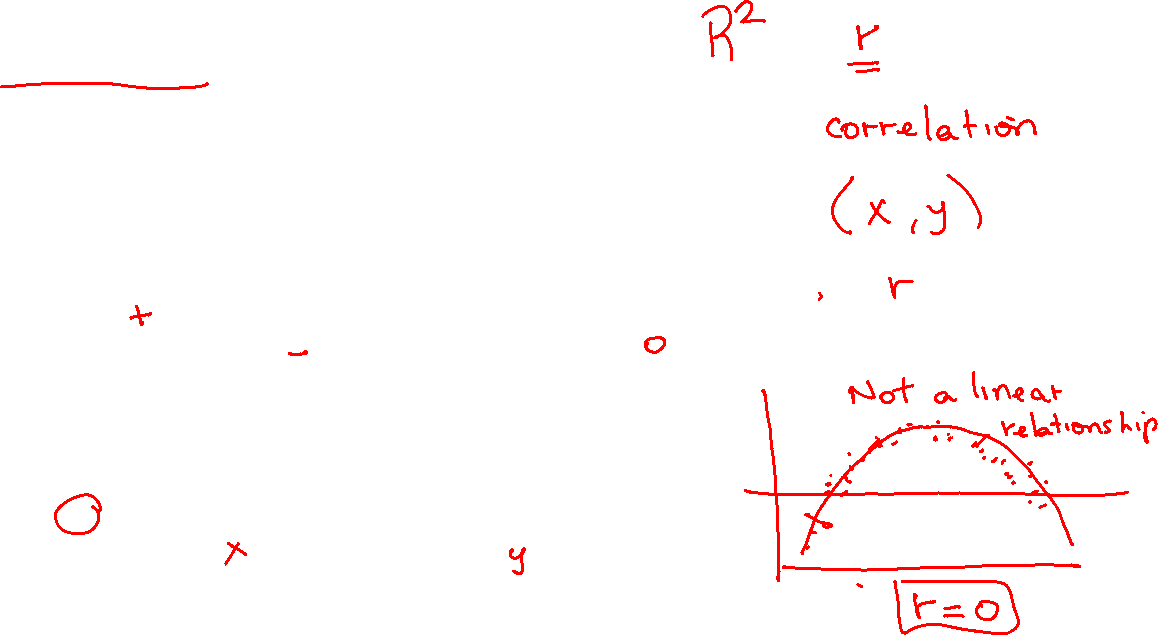 R² r
correlation
(x, y)
, r
+
-
o
Not a linear
relationship
x y
r = 0